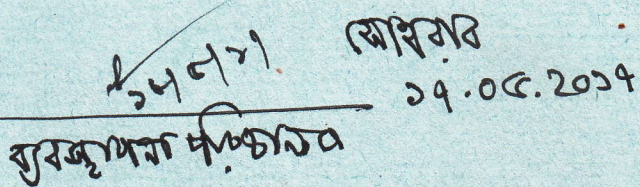 সোমবার
১৭.০৫.2০১৭
ব্যবস্থাপনা পরিচালক